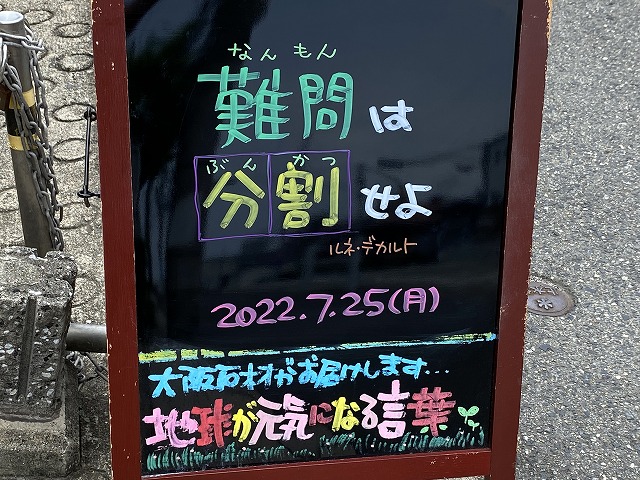 なんもん
難問は
ぶんかつ
分割せよ
ルネ・デカルト
2022.7.25(月)
大阪石材がお届けします...
地球が元気になる言葉